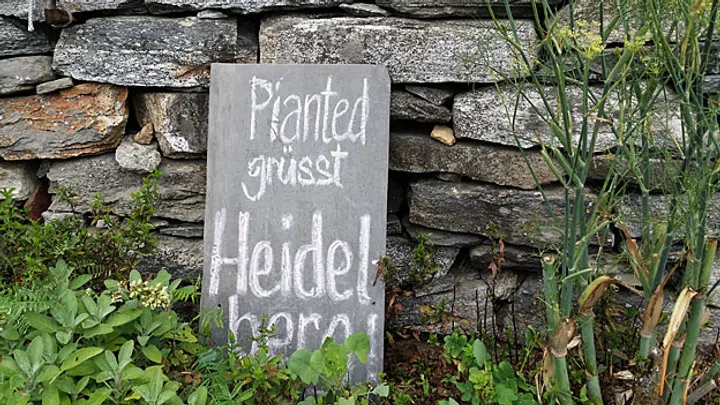 Pianted
grüsst
Heidel-
berg!